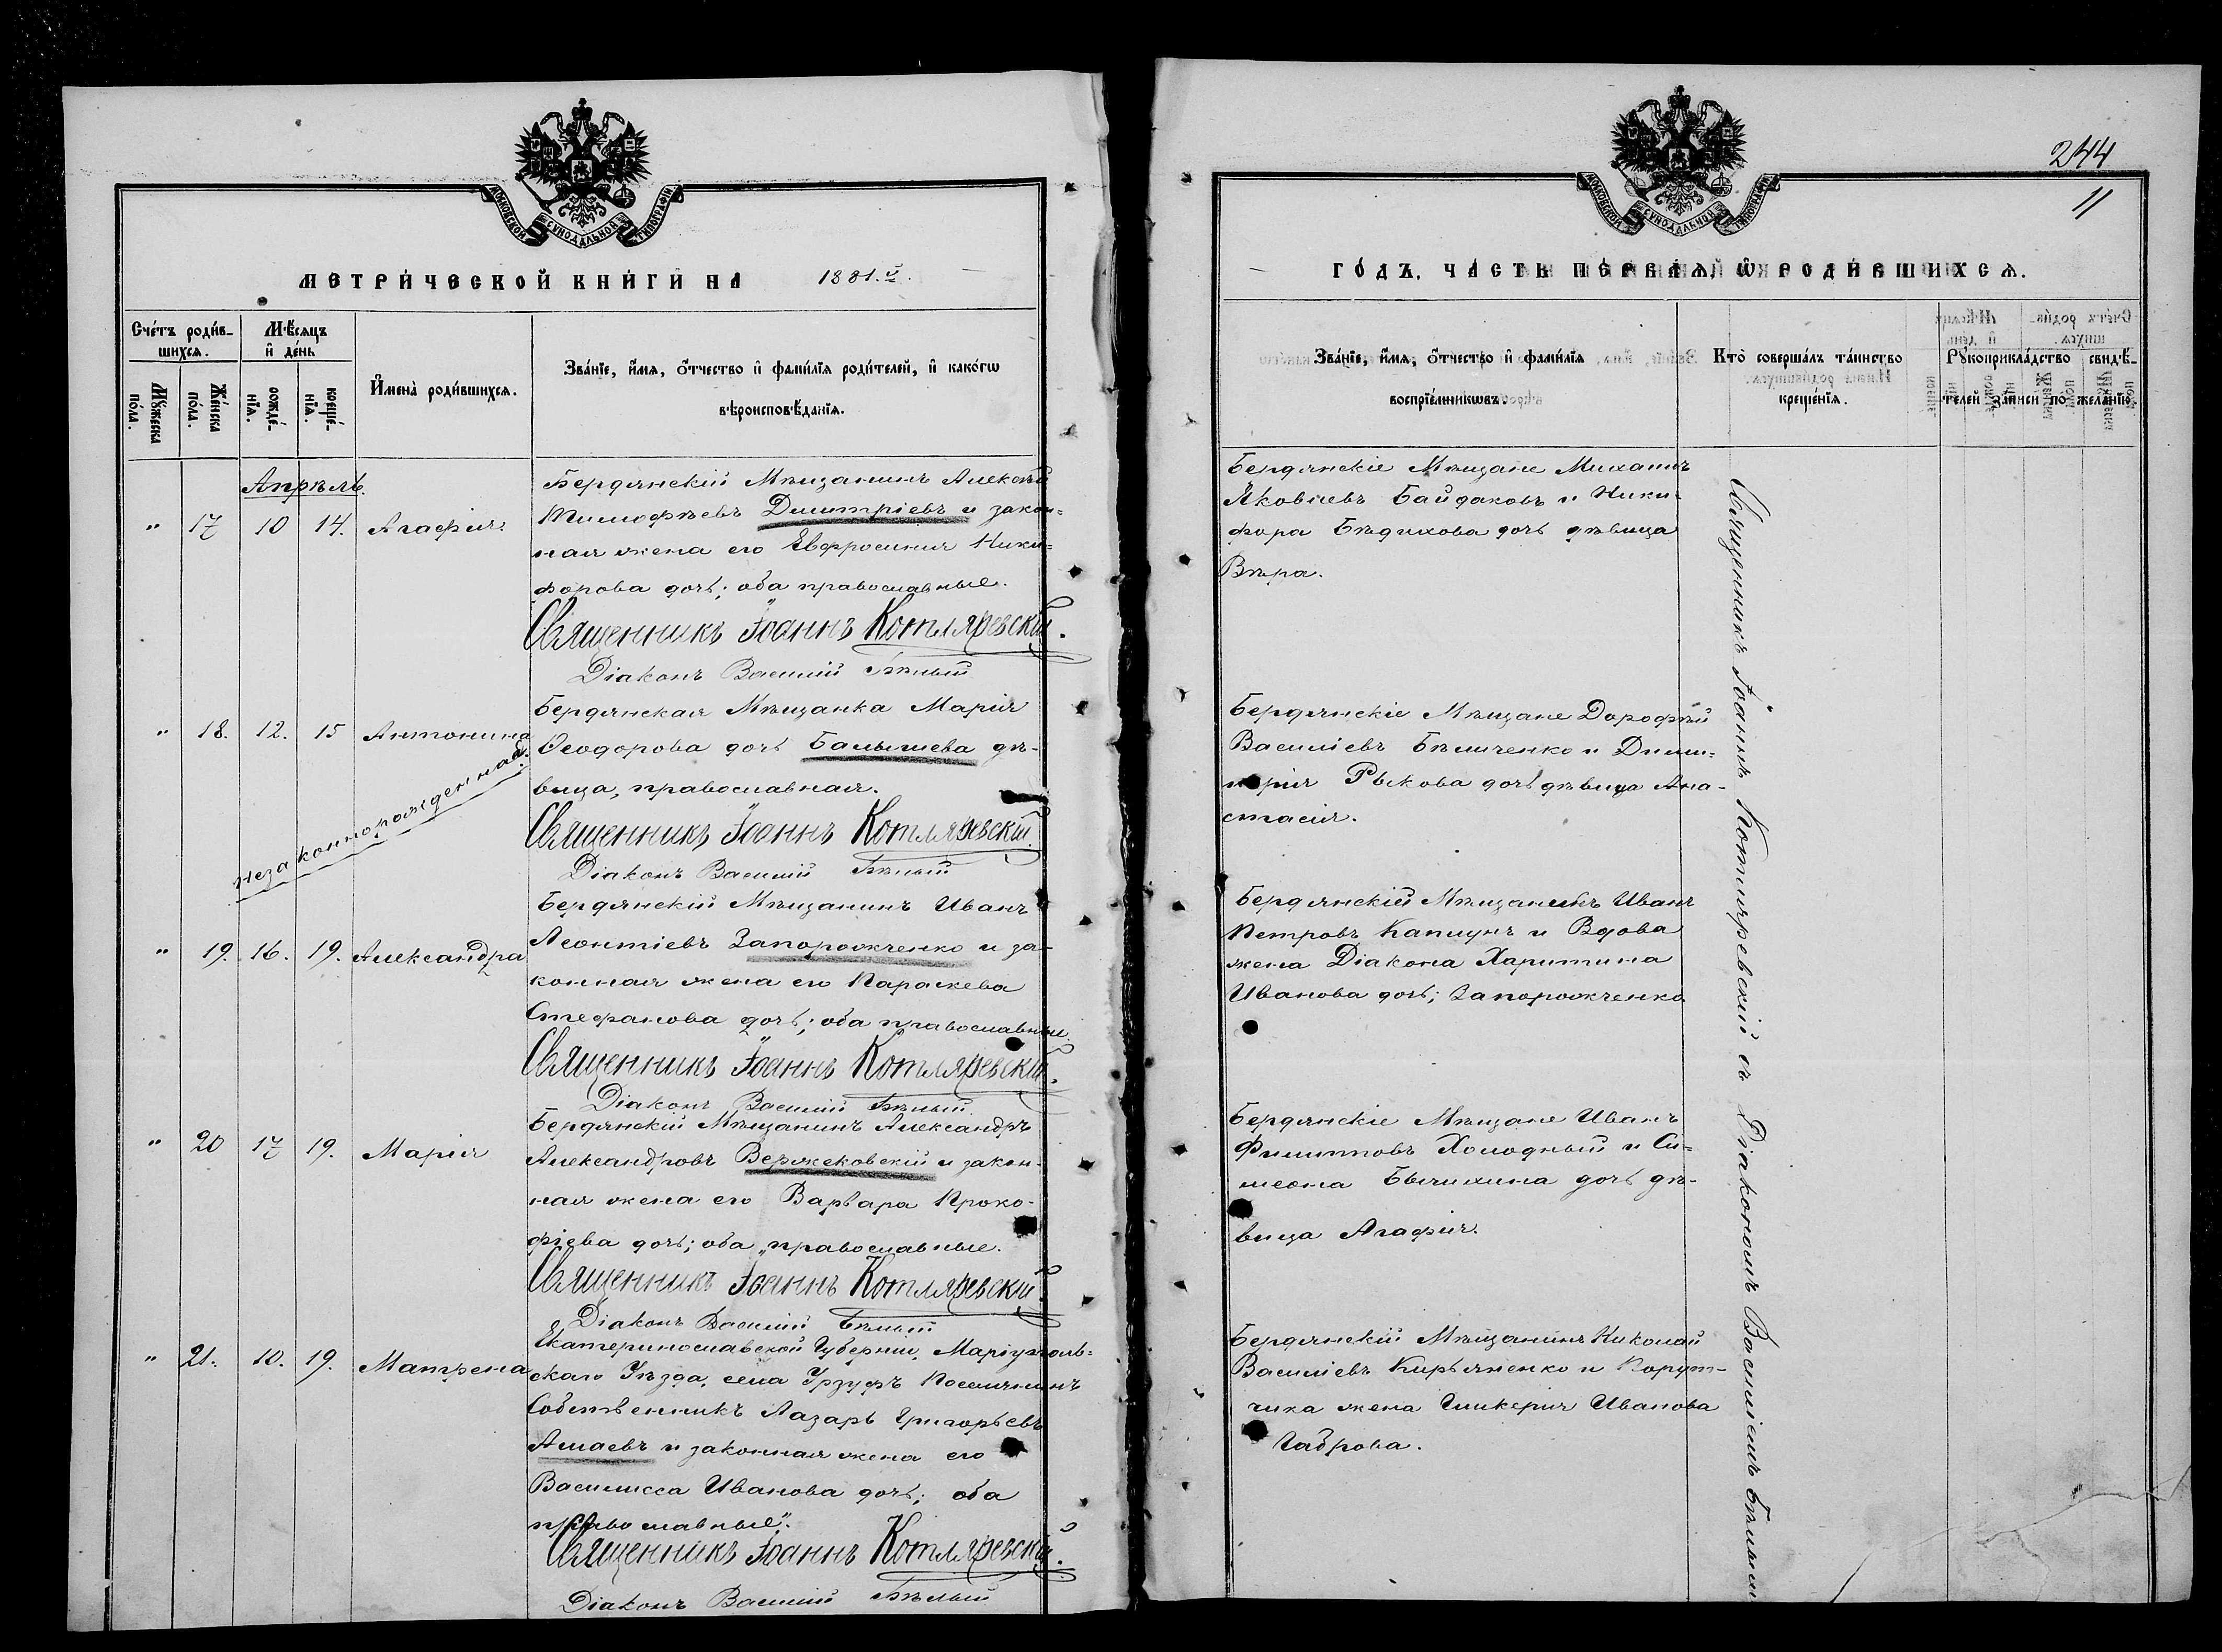 МОСКОВСКОЙ СУНОДАЛЬНОЙ ТИПОГРАФІИ
МЕТРИ́ЧЕСКОЙ КНИ́ГИ НА 1881.й
Сче́тъ роди́в-
шихсѧ.
Мѣ́сѧцъ
и҆ де́нь
Мꙋ́жеска
по́ла.
Же́нска
по́ла.
рожде́-
нїѧ.
креще́-
нїѧ.
И҆мена̀ роди́вшихсѧ.
Зва́нїе, и҆́мѧ, ѻ҆́тчество и҆ фами́лїѧ роди́телей, и҆ како́гѡ
вѣроисповѣ́данїѧ.
Апрѣль.
" 17 10 14. Агафія.
Бердянскій Мѣщанинъ Алексѣй
Тимофѣевъ Димитріевъ и закон=
ная жена его Евфросинія Ники=
форова дочь; оба православные.
Священникъ Іоаннъ Котляревскій.
Діаконъ Василій Бѣлый
" 18. 12. 15 Антонина
незаконнорожденная.
Бердянская Мѣщанка Марія
Ѳеодорова дочь Балышева дѣ-
вица, православная.
Священникъ Іоаннъ Котляревскій.
Діаконъ Василій Бѣлый
" 19. 16. 19. Александра
Бердянскій Мѣщанинъ Иванъ
Леонтіевъ Запорожченко и за-
конная жена его Параскева
Стефанова дочь; оба православные.
Священникъ Іоаннъ Котляревскій.
Діаконъ Василій Бѣлый.
" 20 17 19. Марія
Бердянскій Мѣщанинъ Александръ
Александровъ Вержековскій и закон-
ная жена его Варвара Проко-
фіева дочь; оба православные.
Священникъ Іоаннъ Котляревскій.
Діаконъ Василій Бѣлый
" 21. 10. 19. Матрена
Екатеринославской Губерніи, Маріуполь=
скаго Уѣзда, села Урзуфъ Поселянинъ
Собственникъ Лазарь Григорьевъ
Амаевъ и законная жена его
Василисса Иванова дочь; оба
православные.
Священникъ Іоаннъ Котляревскій.
Діаконъ Василій Бѣлый
244
11
МОСКОВСКОЙ СУНОДАЛЬНОЙ ТИПОГРАФІИ
ГО́ДЪ, ЧА́СТЬ ПЕ́РВАѦ, Ѡ҆ РОДИ́ВШИХСѦ.
Зва́нїе, и҆́мѧ, ѻ҆́тчество и҆ фами́лїѧ
воспрїе́мникѡвъ.
Кто̀ соверша́лъ та́инство
креще́нїѧ.
Рꙋкоприкла́дство свидѣ́-
телей за́писи по жела́нїю.
Бердянскіе Мѣщане Михаилъ
Яковлевъ Байдаковъ и Ники-
фора Бѣдихова дочь дѣвица
Вѣра.
Бердянскіе Мѣщане Дорофѣй
Василіевъ Бѣличенко и Дими=
трія Рыкова дочь дѣвица Ана-
стасія.
Бердянскій Мѣщанинъ Иванъ
Петровъ Каплунъ и Вдова
жена Діакона Харитина
Иванова дочь; Запорожченко
Бердянскіе Мѣщане Иванъ
Филипповъ Холодный и Си=
меона Бычихина дочь дѣ-
вица Агафія.
Бердянскій Мѣщанинъ Николай
Василіевъ Кирьяненко и Порут-
чика жена Гликерія Иванова
Габрова.
Священникъ Іоаннъ Котляревскій съ Діакономъ Василіемъ Бѣлымъ